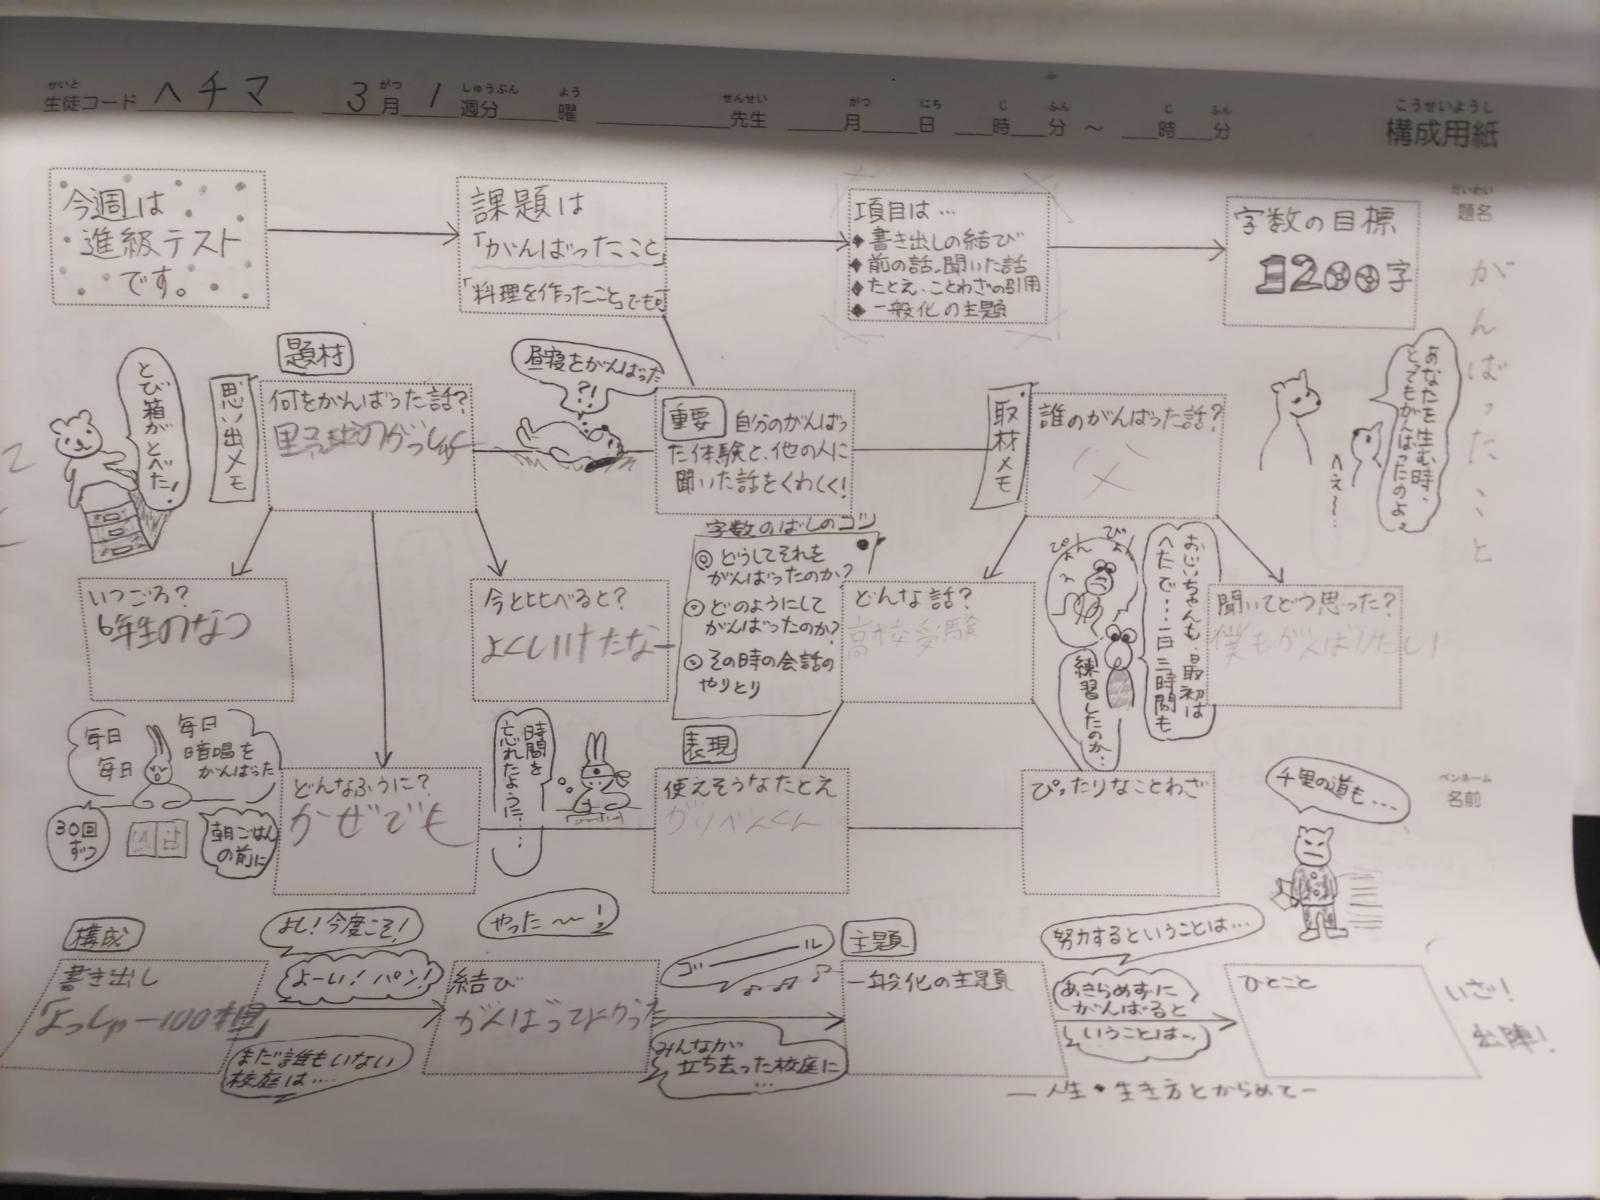 せいと
生徒コード ヘチマ 3月1週分 曜 先生 月 日 時 分 ～ 時 分
がつ しゅうぶん よう せんせい がつ にち じ ふん じ ふん
こうせいようし
構成用紙
だいめい
題名
がんばったこと
今週は
進級テスト
です。
課題は
「がんばったこと」
「料理を作ったこと」でも可
項目は…
◆書き出しの結び
◆前の話、聞いた話
◆たとえ、ことわざの引用
◆一般化の主題
字数の目標
1200字
とび箱がとべた！
思い出メモ
題材
何をがんばった話？
野球のがっしゅく
昼寝をがんばった
?!
重要 自分のがんばっ
た体験と、他の人に
聞いた話をくわしく！
取材メモ
誰のがんばった話？
父
あなたを生む時、
とてもがんばったのよ。
へぇ～…
いつごろ？
6年生のなつ
今と比べると？
よくしいけたなー
字数のばしのコツ
◎どうしてそれを
がんばったのか？
◎どのようにして
がんばったのか？
◎その時の会話の
やりとり
どんな話？
高校受験
ぴょん
ぴょ
おじいちゃんも、最初は
へたで…一日三時間も
練習したのか…
聞いてどう思った？
僕もがんばりたい
毎日
毎日
毎日
暗唱を
がんばった
30回
ずつ
朝ごはん
の前に
どんなふうに？
かぜでも
時間を
忘れたように……
表現
使えそうなたとえ
がりべんくん
ぴったりなことわざ
千里の道も…
ペンネーム
名前
構成
書き出し
「よっしゃー100本目」
よし！今度こそ！
よーい！パン！
まだ誰もいない
校庭は…
やった～～！
結び
がんばってよかった
ゴール
みんなが
立ち去った校庭に
…
主題
一般化の主題
努力するということは…
あきらめずに
がんばると
いうことは…
ひとこと
いざ！
出陣！
―人生・生き方とからめて―